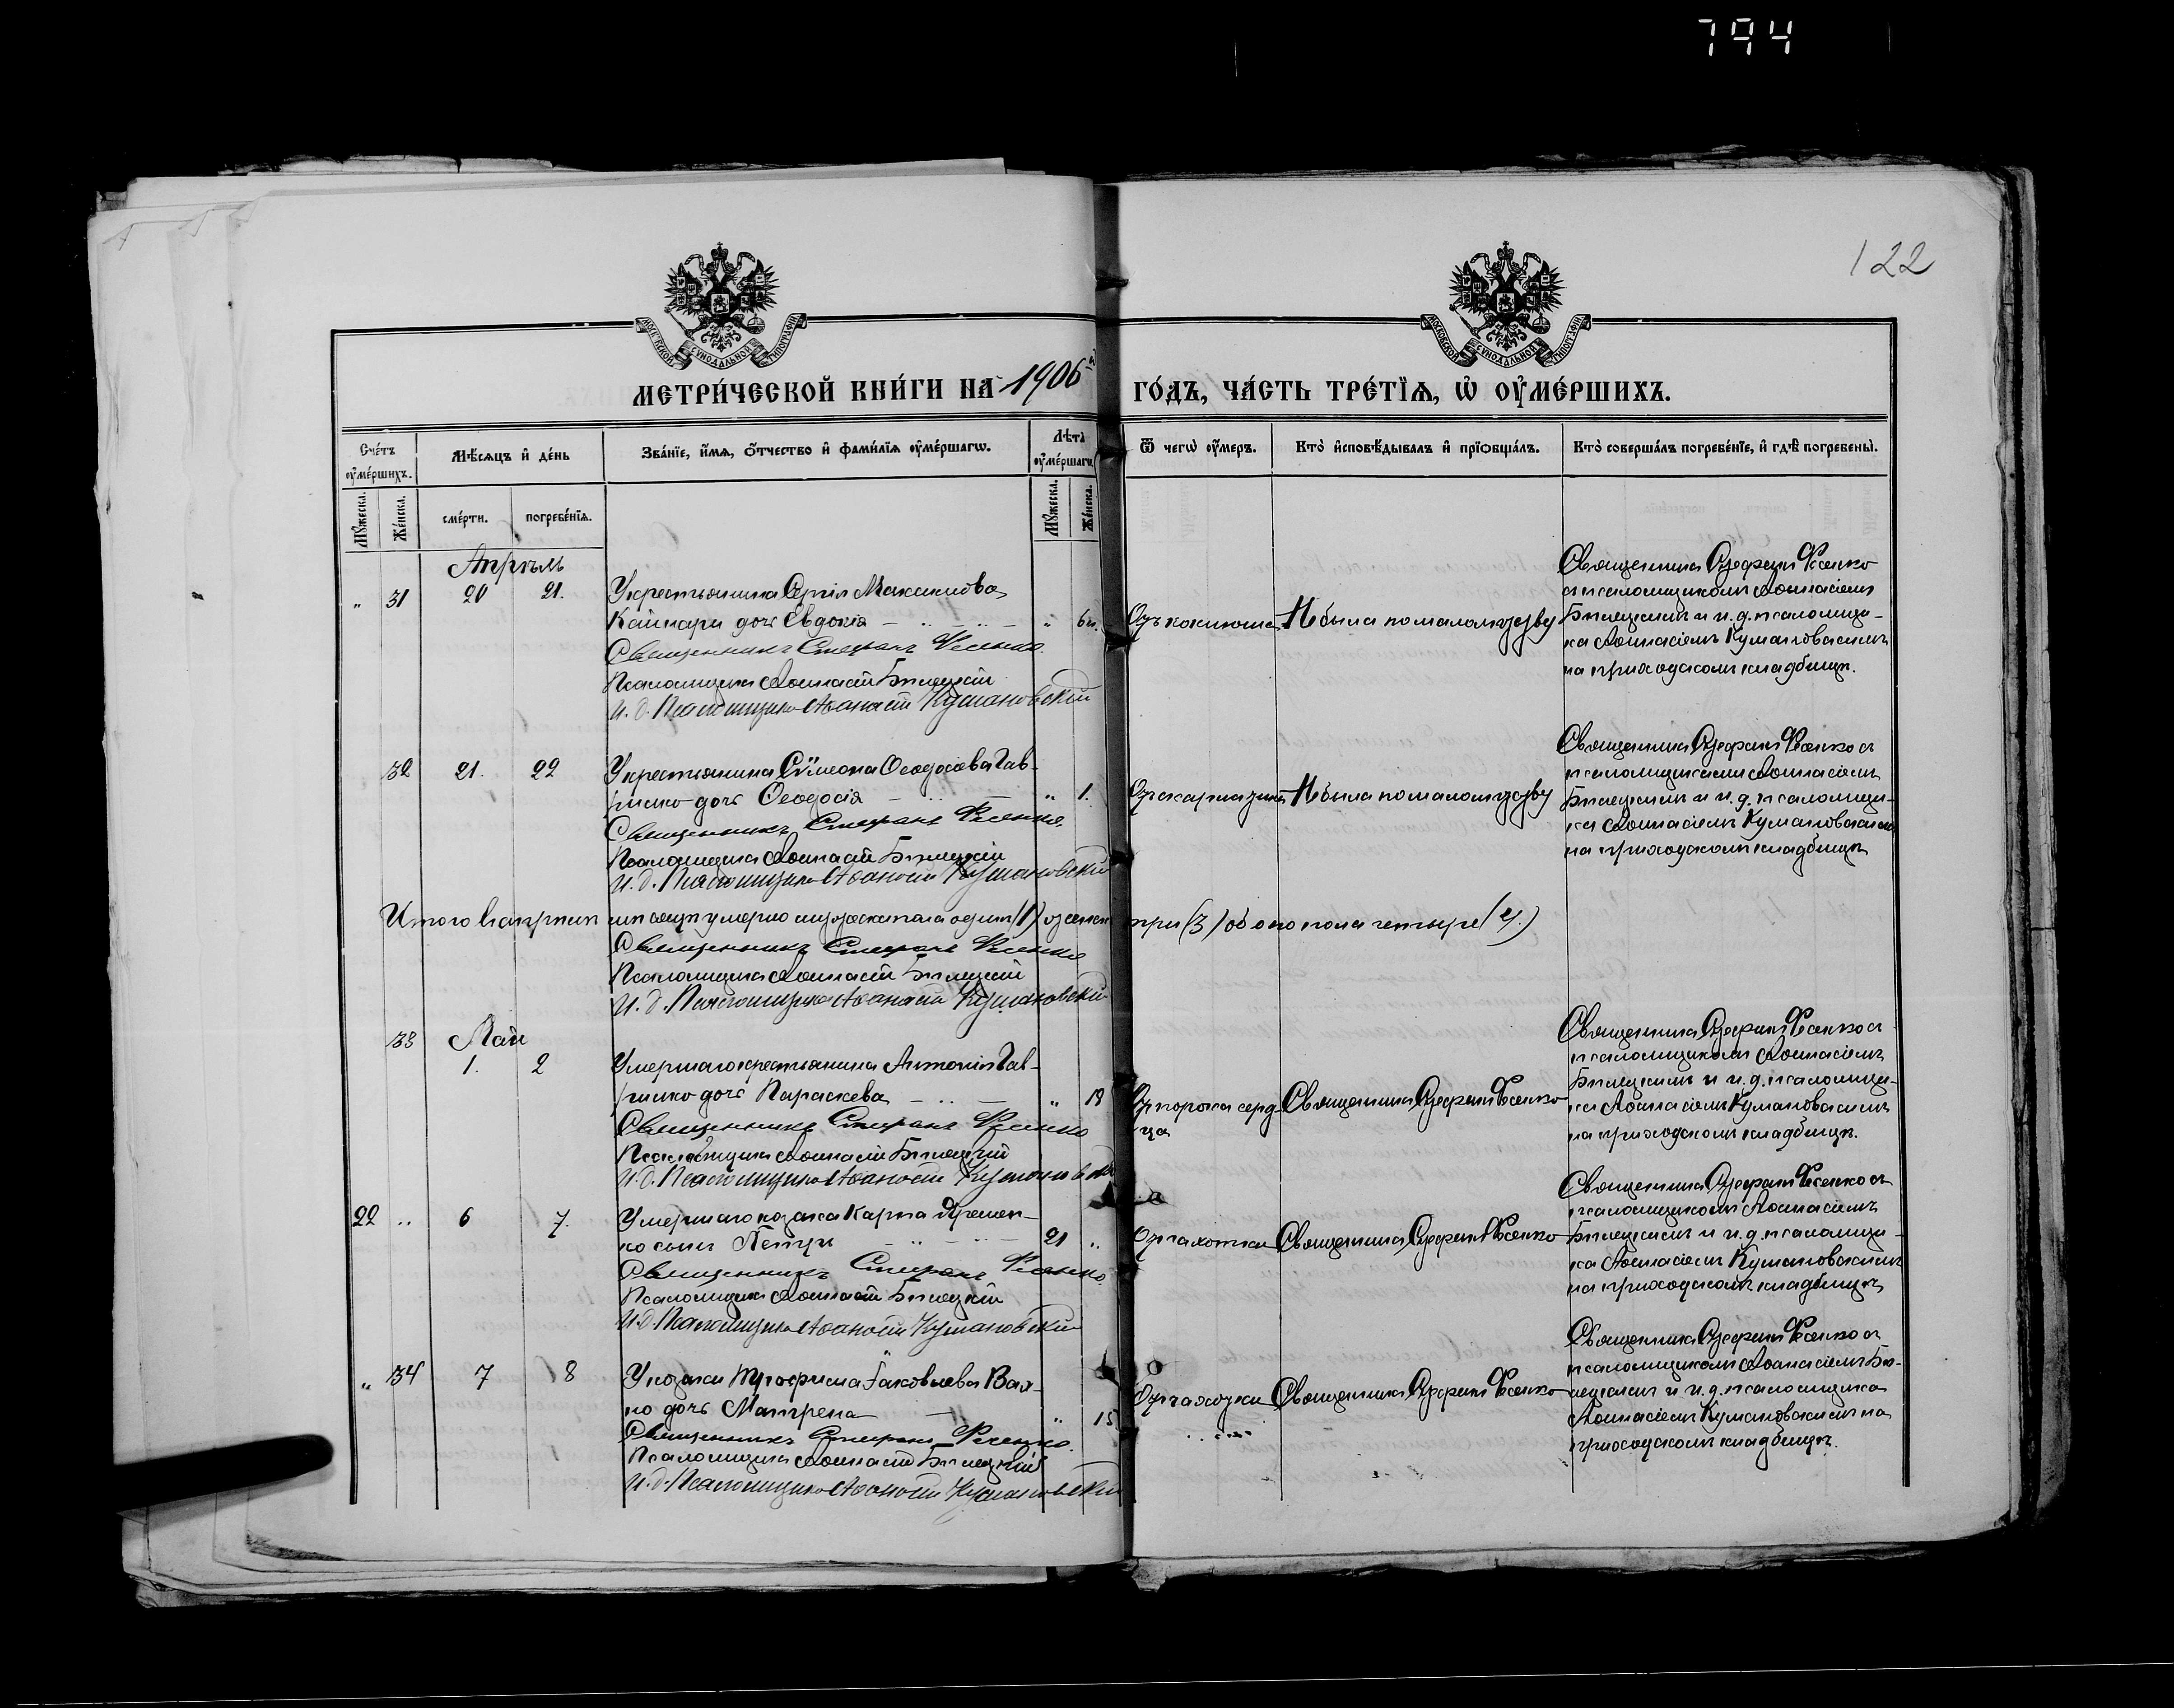 794
122
МОСКОВСКОЙ СУНОДАЛЬНОЙ ТИПОГРАФІИ
МОСКОВСКОЙ СУНОДАЛЬНОЙ ТИПОГРАФІИ
МЕТРИ́ЧЕСКОЙ КНИ́ГИ НА 1906 ГО́ДЪ, ЧА́СТЬ ТРЕ́ТІѦ, Ѡ҆ ОУ҆МЕ́РШИХЪ.
Сче́тъ оу҆ме́ршихъ.
Мѣ́сѧцъ и҆ де́нь
Зва́нїе, и҆́мѧ, ѻ҆́тчество и҆ фами́лїѧ оу҆ме́ршагѡ.
Лѣ́та оу҆ме́ршагѡ
Ѿ чегѡ̀ оу҆́меръ.
Кто̀ и҆сповѣ́дывалъ и҆ прїѡбща́лъ.
Кто̀ соверша́лъ погребе́нїе, и҆ гдѣ̀ погребены̀.
Мꙋ́жеска.
Же́нска.
сме́рти.
погребе́нїѧ.
Мꙋ́жеска.
Же́нска.
Апрѣль
„ 31 20 21. У крестьянина Сергія Максимова
дочь Евдокія „
Священникъ Стефанъ Фесенко.
Псаломщикъ Аѳанасій Билецкій
И. д. Псаломщика Аѳанасій Кумановскій
Отъ коклюша
Не была по малолѣтству
Священникъ Стефанъ Фесенко
съ псаломщикомъ Аѳанасіемъ
Билецкимъ и и. д. псаломщи-
ка Аѳанасіемъ Кумановскимъ
на приходскомъ кладбищѣ.
32 21. 22 У крестьянина Сѵмеона Ѳеодосіева Гав-
рилко дочь Ѳеодосія „ 1.
Священникъ Стефанъ Фесенко.
Псаломщикъ Аѳанасій Билецкій
И. д. Псаломщика Аѳанасій Кумановскій
Отъ скарлатины
Не была по малолѣтству
Священникъ Стефанъ Фесенко съ
псаломщикомъ Аѳанасіемъ
Билецкимъ и и. д. псаломщи-
ка Аѳанасіемъ Кумановскимъ
на приходскомъ кладбищѣ
Итого въ апрѣлѣ мѣсяцѣ умерло мужеска пола одинъ (1) женск три (3) обоего пола четыре (4.)
Священникъ Стефанъ Фесенко
Псаломщикъ Аѳанасій Билецкій
И. д. Псаломщика Аѳанасій Кумановскій
Май
33 1. 2 Умершаго крестьянина Антонія Гав-
рилко дочь Параскева „ 18
Священникъ Стефанъ Фесенко
Псаломщикъ Аѳанасій Билецкій
И. д. Псаломщика Аѳанасій Кумановскій
Отъ порока серд-
ца
Священникъ Стефанъ Фесенко
Священникъ Стефанъ Фесенко съ
псаломщикомъ Аѳанасіемъ
Билецкимъ и и. д. псаломщи-
ка Аѳанасіемъ Кумановскимъ
на приходскомъ кладбищѣ.
22 „ 6 7. Умершаго козака Карпа
ко сынъ Петръ 21 „
Священникъ Стефанъ Фесенко.
Псаломщикъ Аѳанасій Билецкій
И. д. Псаломщика Аѳанасій Кумановскій
Отъ чахотки
Священникъ Стефанъ Фесенко
Священникъ Стефанъ Фесенко съ
псаломщикомъ Аѳанасіемъ
Билецкимъ и и. д. псаломщи-
ка Аѳанасіемъ Кумановскимъ
на приходскомъ кладбищѣ
„ 34 7 8 У козака Трофима Іаковлева
дочь Матрена „ 15
Священникъ Стефанъ Фесенко.
Псаломщикъ Аѳанасій Билецкій
И. д. Псаломщика Аѳанасій Кумановскій
Отъ чахотки
Священникъ Стефанъ Фесенко
Священникъ Стефанъ Фесенко съ
псаломщикомъ Аѳанасіемъ Би-
лецкимъ и и. д. псаломщика
Аѳанасіемъ Кумановскимъ на
приходскомъ кладбищѣ.